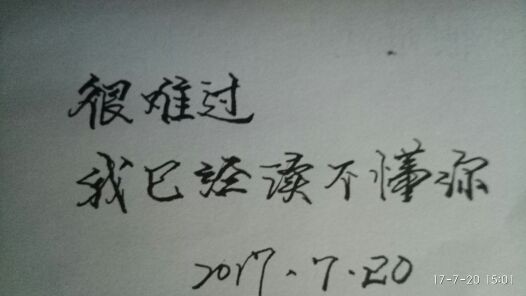 很难过
我已经读不懂你
2017.7.20
17-7-20 15:01